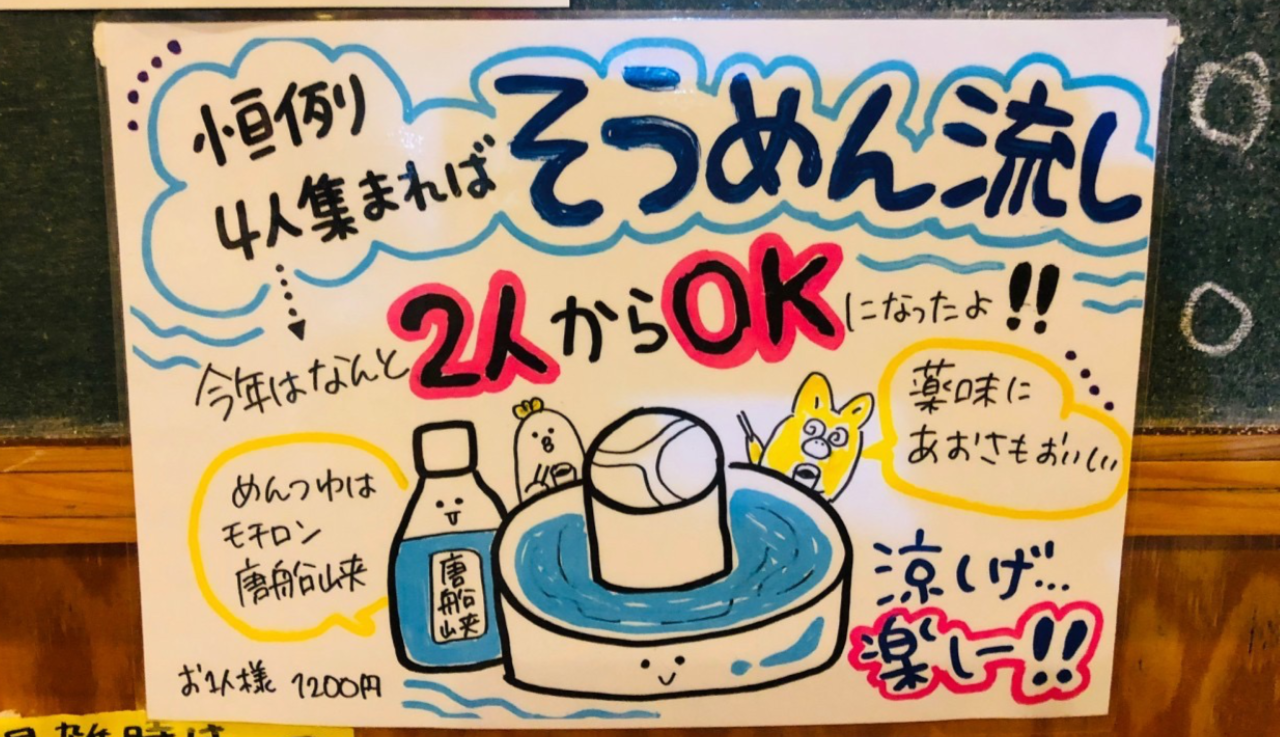 恒例
4人集まれば
そうめん流し
今年はなんと2人からOKになったよ!!
薬味に
あおさもおいしい
めんつゆは
モチロン
唐船峡
唐船峡
涼しげ…
楽しー!!
お1人様 1200円